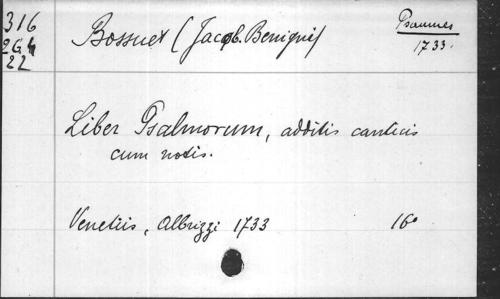 316
264
22
Bossuet (Jacob. Benigne)
Psaumes
1733.
Liber Psalmorum, additis canticis
cum notis.
Venetiis, Albrizzi 1733 16°